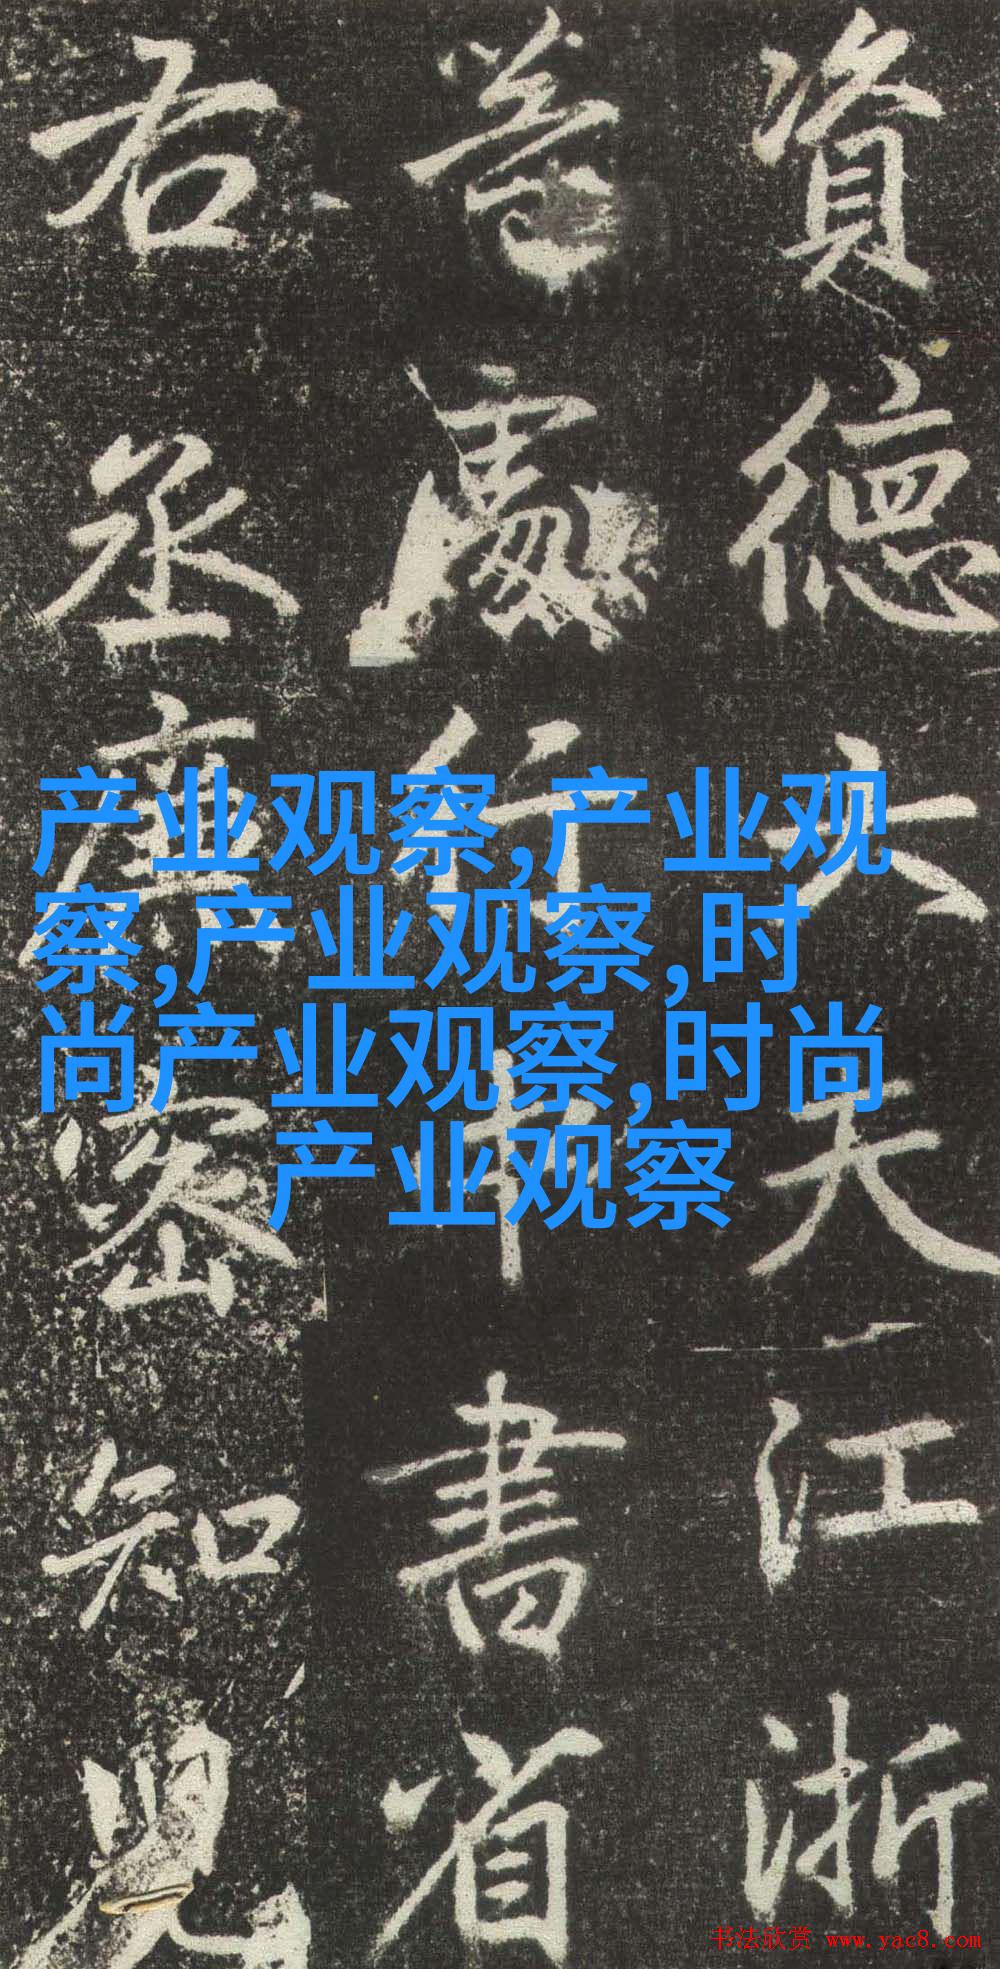 資德大夫江浙
等處行中書省
右丞廉密知兒
产业观察,产业观
察,产业观察,时
尚产业观察,时尚
产业观察
书法欣赏 www.yac8.com